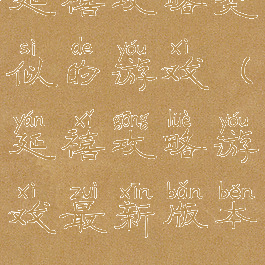 延禧攻略类
sì de yóu xì
似的游戏（
yán xǐ gōng lüè yóu
延禧攻略游
xì zuì xīn bǎn běn
戏最新版本